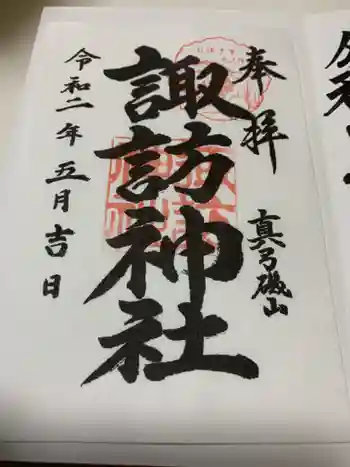 奉拝
真弓磯山
諏訪神社
令和二年五月吉日